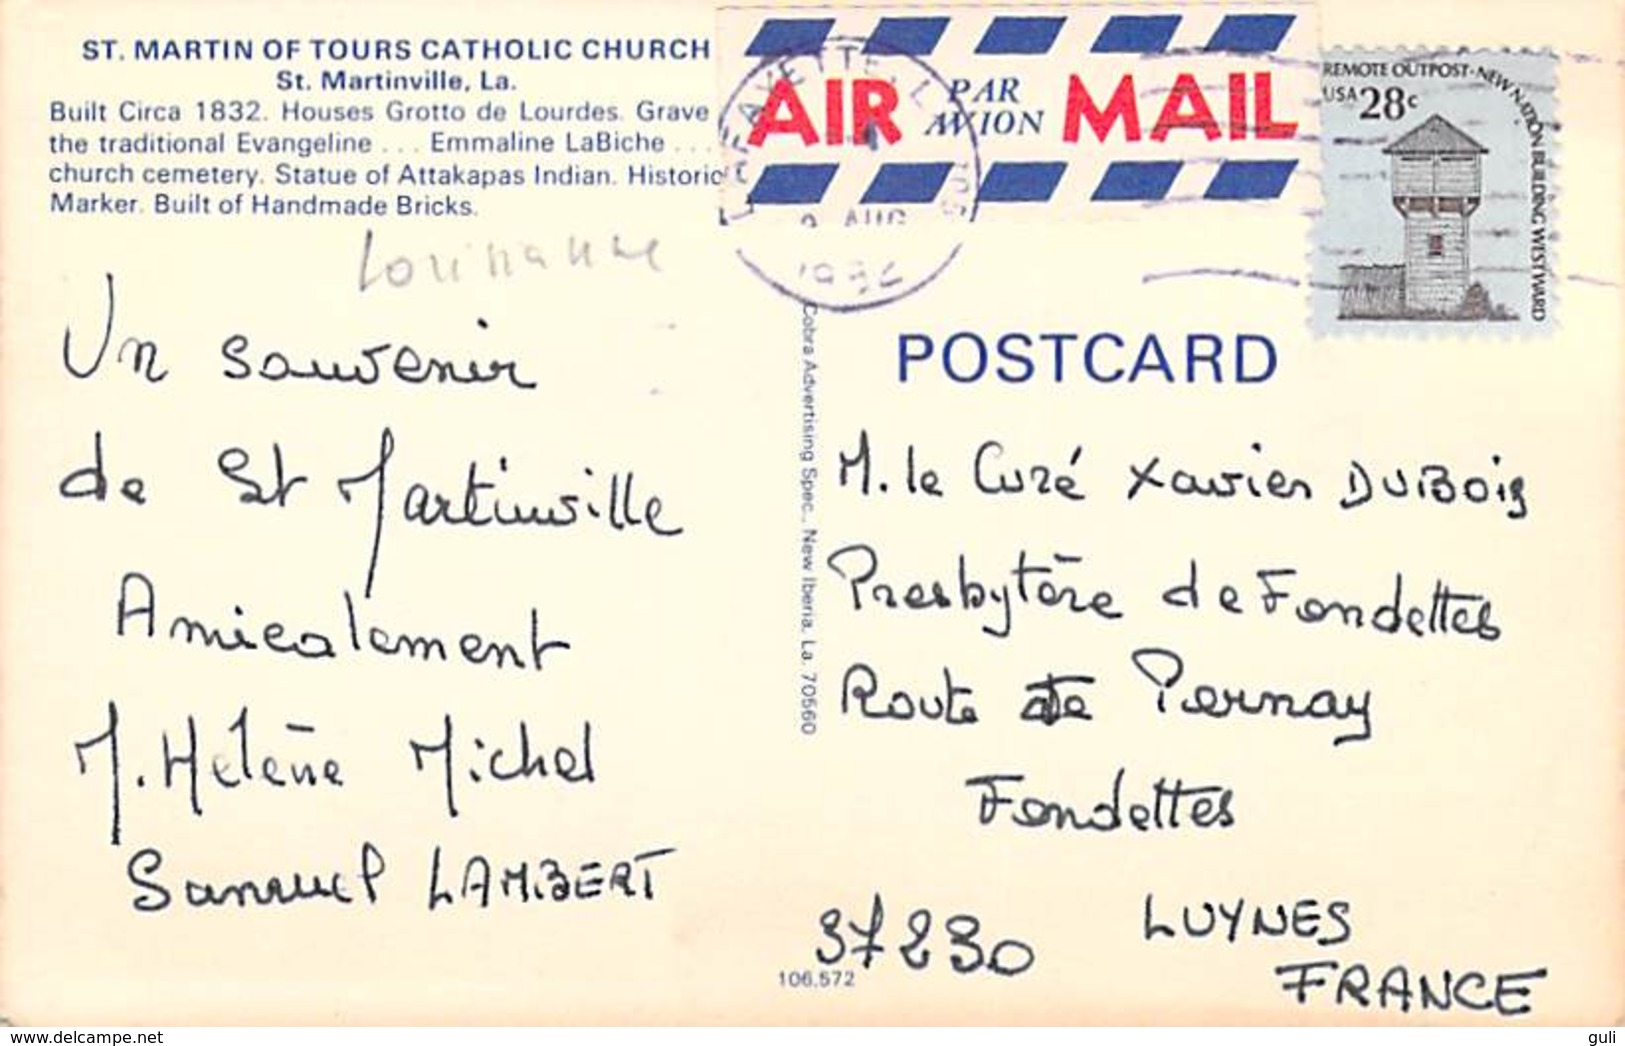 ST. MARTIN OF TOURS CATHOLIC CHURCH
St. Martinville, La.
Built Circa 1832. Houses Grotto de Lourdes. Grave
the traditional Evangeline . . . Emmaline LaBiche . . .
church cemetery. Statue of Attakapas Indian. Historic
Marker. Built of Handmade Bricks.
Louisianne
Un souvenir
de St Martinville
Amicalement
M. Hélène Michel
Samuel LAMBERT
AIR PAR AVION MAIL
LAFAYETTE, L
AUG
REMOTE OUTPOST·NEW NATION BUILDING WESTWARD
USA 28c
POSTCARD
Cobra Advertising Spec., New Iberia, La. 70560
M. le Curé Xavier DUBOIS
Presbytère de Fondettes
Route de Pernay
Fondettes
37230 LUYNES
FRANCE
106,572
www.delcampe.net
guli